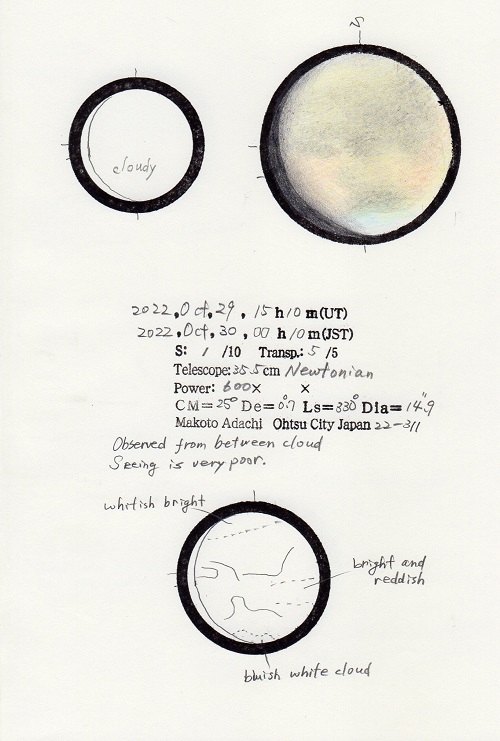 S
cloudy
2022, Oct, 29, 15 h 10 m(UT)
2022, Oct, 30, 00 h 10 m(JST)
S: 1 /10 Transp.: 5 /5
Telescope: 35.5 cm Newtonian
Power: 600× ×
CM=25° De=0.°7 Ls=330° Dia=14."9
Makoto Adachi Ohtsu City Japan 22-311
Observed from between cloud
Seeing is very poor.
whitish bright
bright and
reddish
bluish white cloud